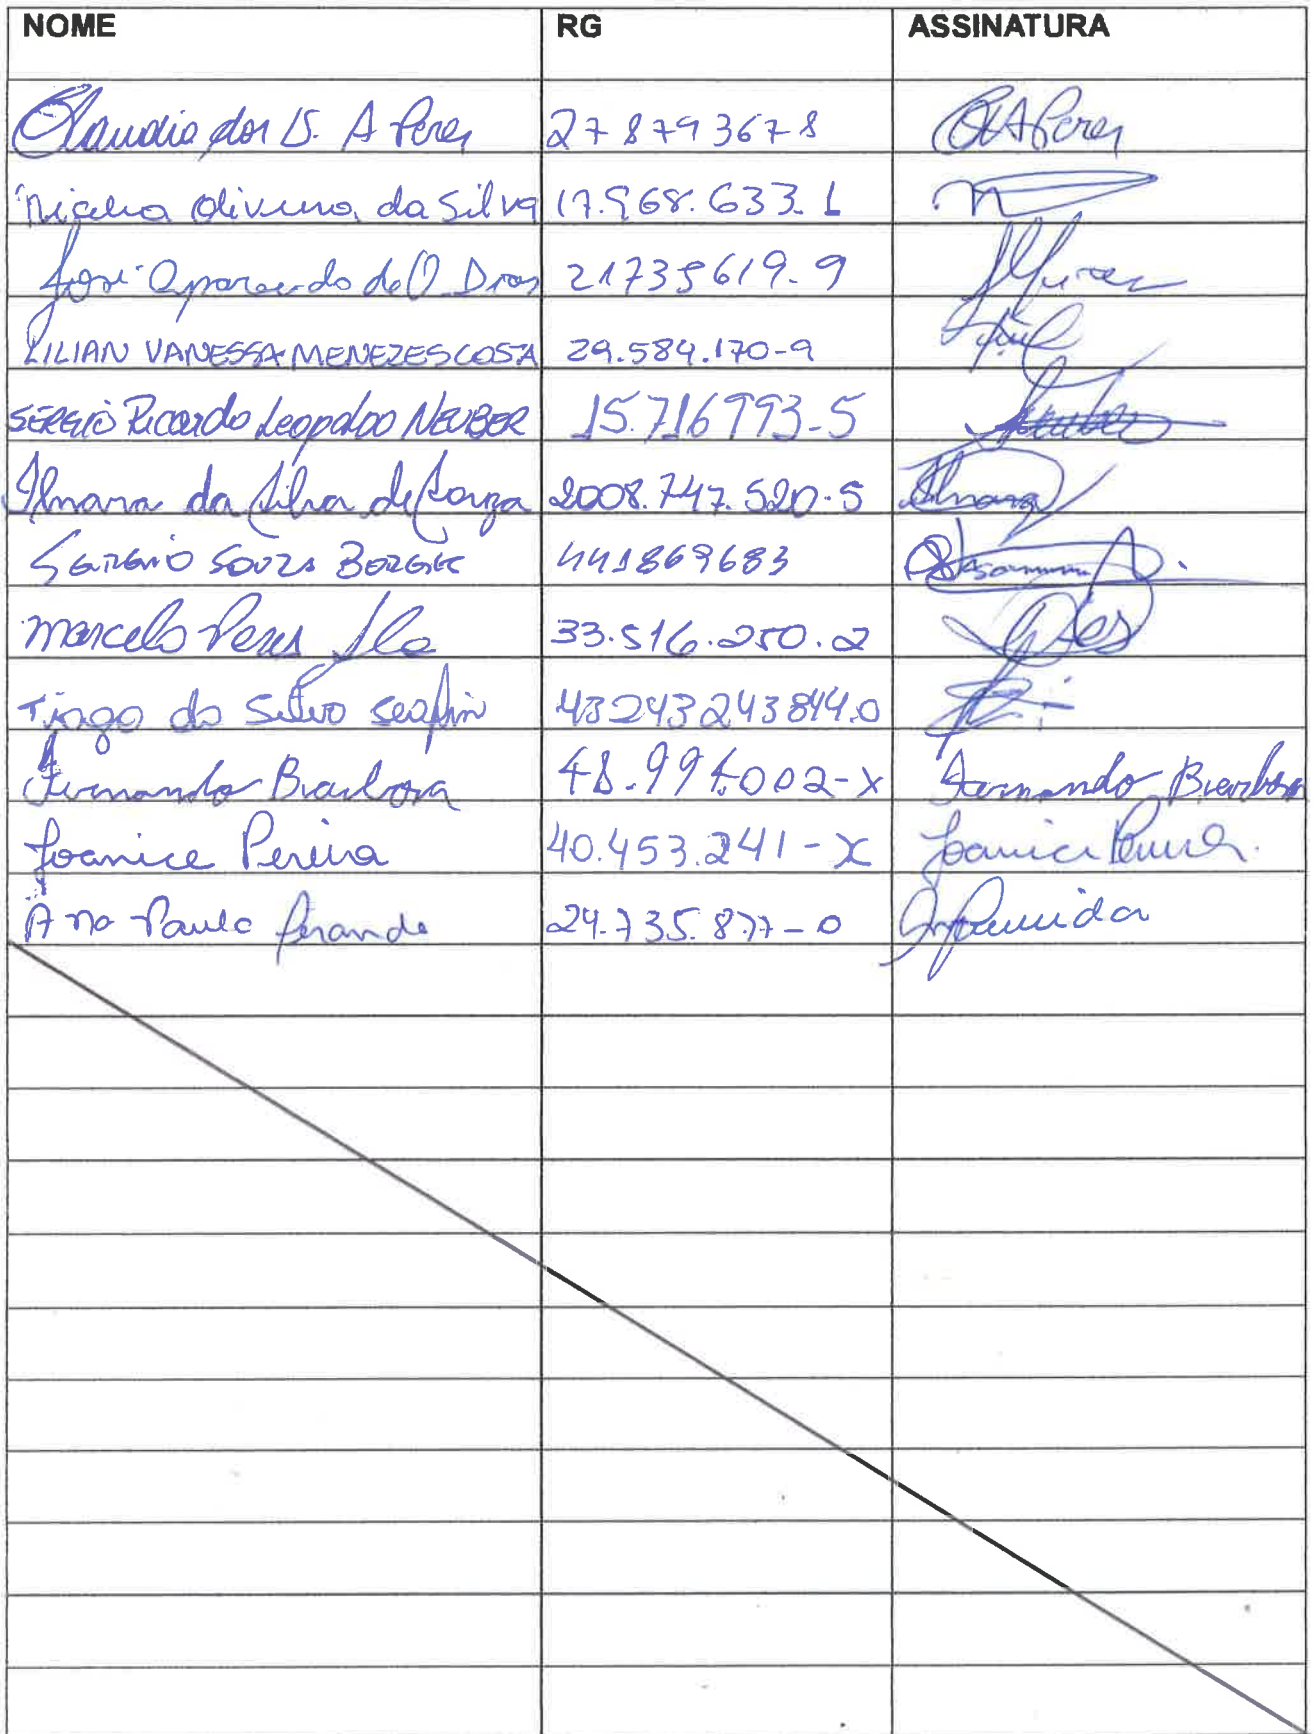 NOME RG ASSINATURA
Claudia dos S. A Peres 27879367-8
Oliveira da Silva 17.968.633.1
José Aparecido de O. Dias 21735619-9
LILIAN VANESSA MENEZES COSTA 29.584.170-9
SÉRGIO Ricardo Leopoldo NEUBER 15.716993-5
Ilmara da Silva de Souza 2008.747.520-5 Ilmara
SERGIO SOUZA BORGES 441869683
Marcelo Peres 33.516.250.2
Tiago da Silva Serafin
Fernando Barbosa Fernando Barbosa
Joanice Pereira 40.453.241-X Joanice Pereira.
Ana Paula 24.735.877-0